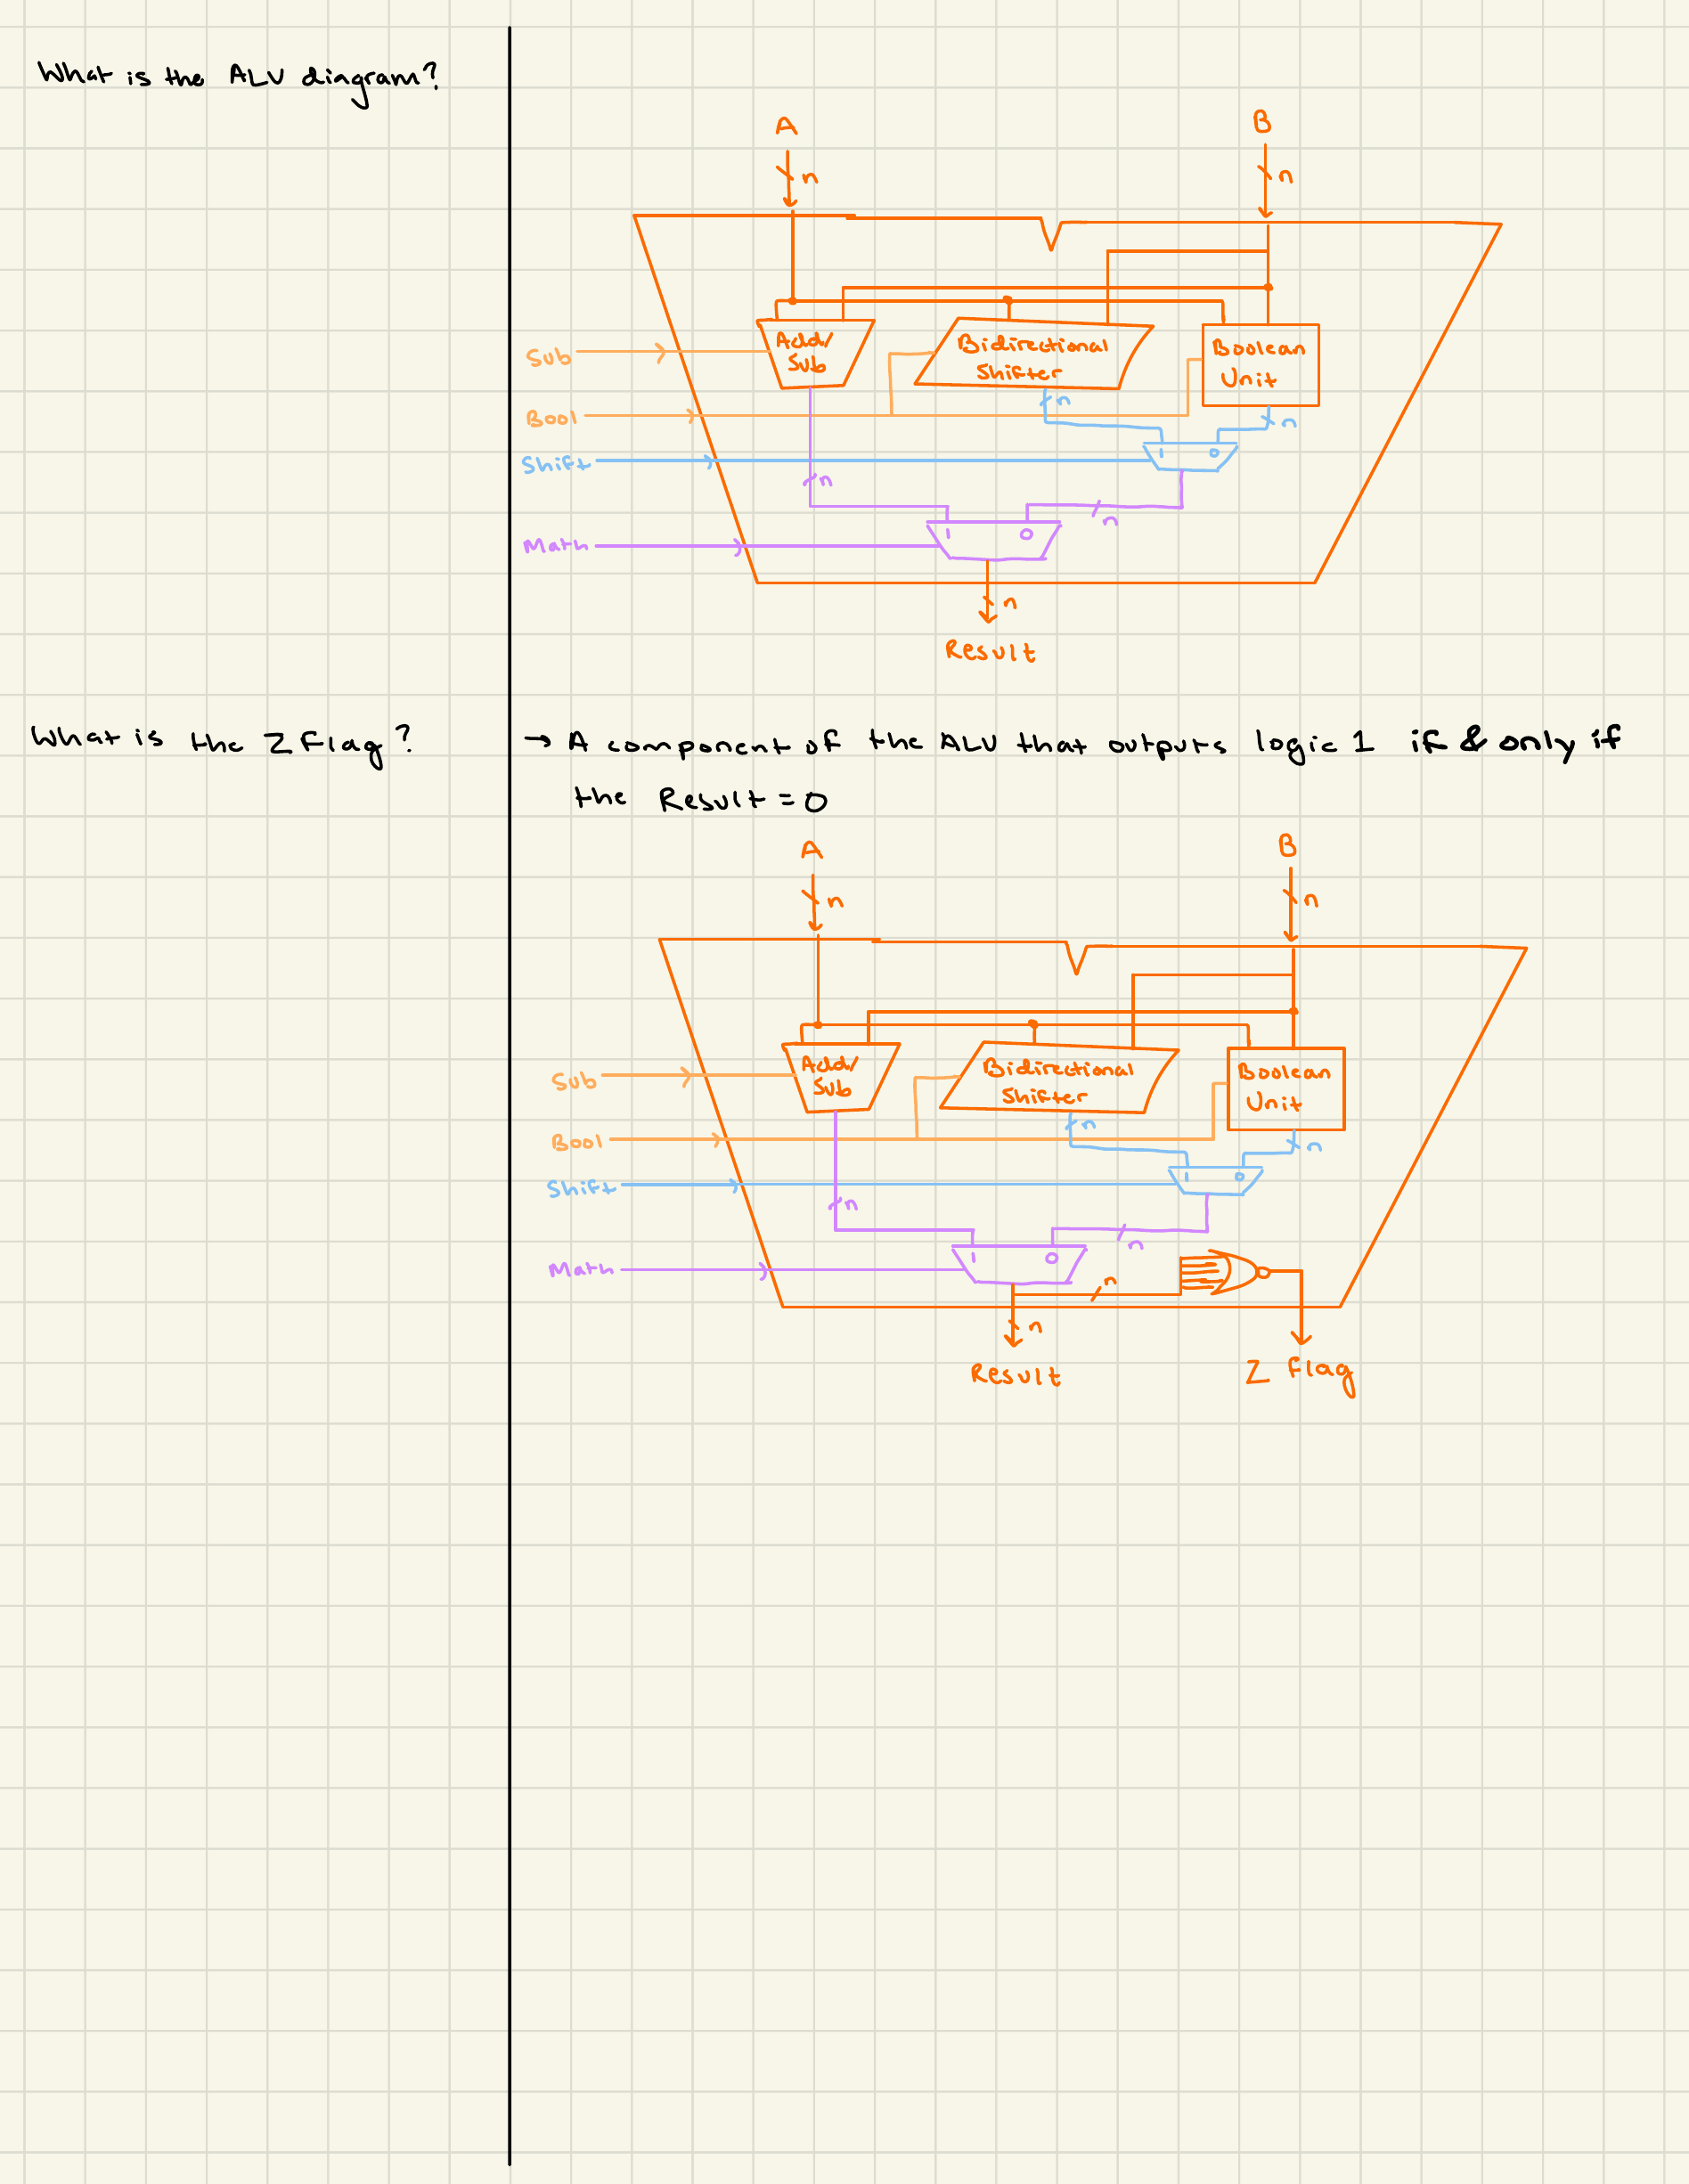 What is the ALU diagram?
A
B
n
n
Sub
Add/
Sub
Bidirectional
Shifter
Boolean
Unit
Bool
n
n
Shift
1
0
n
n
Math
1
0
n
Result
What is the Z Flag?
→ A component of the ALU that outputs logic 1 if & only if
the Result = 0
A
B
n
n
Sub
Add/
Sub
Bidirectional
Shifter
Boolean
Unit
Bool
n
n
Shift
1
0
n
n
Math
1
0
n
n
Result
Z Flag